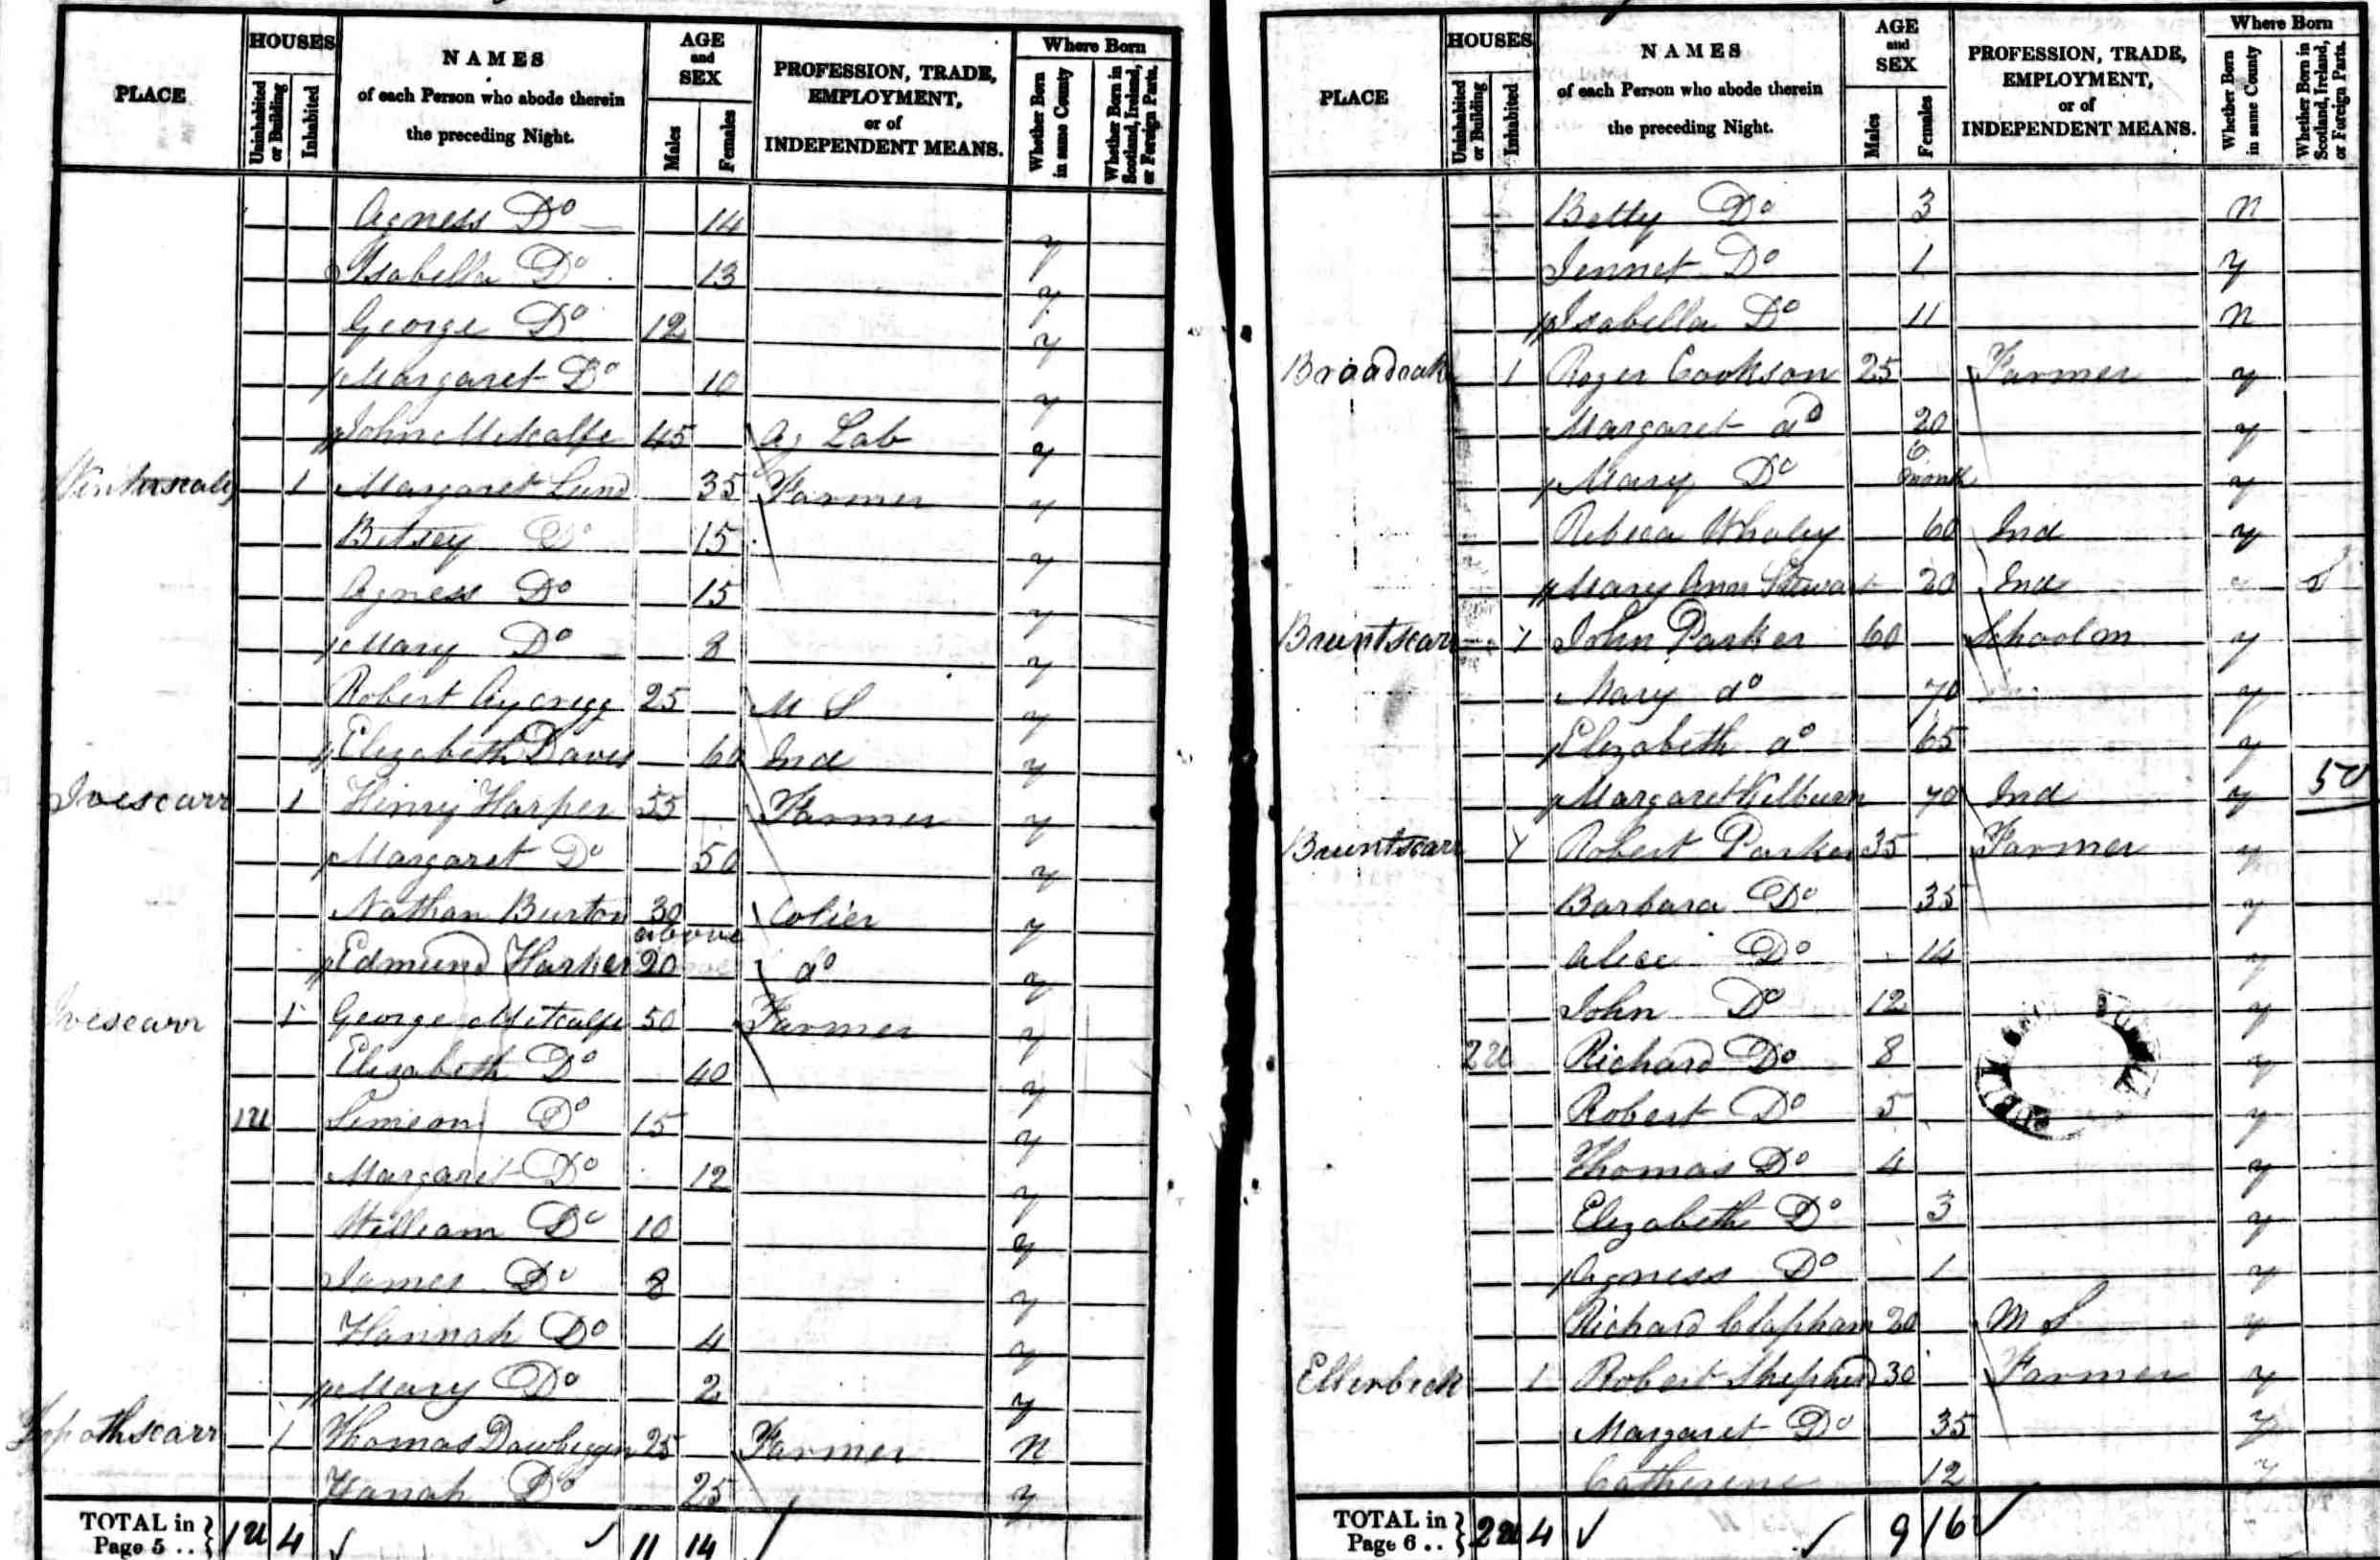 PLACE
HOUSES
Uninhabited or Building
Inhabited
NAMES
of each Person who abode therein
the preceding Night.
AGE and SEX
Males
Females
PROFESSION, TRADE, EMPLOYMENT, or of INDEPENDENT MEANS.
Where Born
Whether Born in same County
Whether Born in Scotland, Ireland, or Foreign Parts.
Agness Do 14 y
Isabella Do 13 y
George Do 12 y
Margaret Do 10 y
John Metcalfe 45 Ag Lab y
1 Margaret Lund 35 Farmer y
Betsey Do 15 y
Agness Do 15 y
Mary Do 8 y
Robert 25 M S y
Elizabeth Davis 60 Ind y
Ivescarr 1 Henry Harper 55 Farmer y
Margaret Do 50 y
Nathan Burton 30 Colier y
above
Edmund Harker 20 do y
Ivescarr 1 George Metcalfe 50 Farmer y
Elizabeth Do 40 y
1U Simeon Do 15 y
Margaret Do 12 y
William Do 10 y
James Do 8 y
Hannah Do 4 y
Mary Do 2 y
1 Thomas 25 Farmer n
Hanah Do 25 y
TOTAL in Page 5 .. } 1U 4 11 14
PLACE
HOUSES
Uninhabited or Building
Inhabited
NAMES
of each Person who abode therein
the preceding Night.
AGE and SEX
Males
Females
PROFESSION, TRADE, EMPLOYMENT, or of INDEPENDENT MEANS.
Where Born
Whether Born in same County
Whether Born in Scotland, Ireland, or Foreign Parts.
Betty Do 3 n
Jennet Do 1 y
Isabella Do 11 n
Broadoak 1 Roger Cookson 25 Farmer y
Margaret do 20 y
Mary Do 6 month y
Rebeca Whaley 60 Ind y
Mary Ann Stewart 20 Ind S
Bruntscarr 1 John Parker 60 School m y
Mary do 70 y
Elizabeth do 65 y
Margaret Kilburn 70 Ind y 50
Bruntscarr 1 Robert Parker 35 Farmer y
Barbara Do 35 y
Alice Do 14 y
John Do 12 y
2U Richard Do 8 y
Robert Do 5 y
Thomas Do 4 y
Elizabeth Do 3 y
Agness Do 1 y
Richard Clapham 20 M S y
Ellerbeck 1 Robert Shepherd 30 Farmer y
Margaret Do 35 y
Catherine 12 y
TOTAL in Page 6 .. } 2U 4 9 16